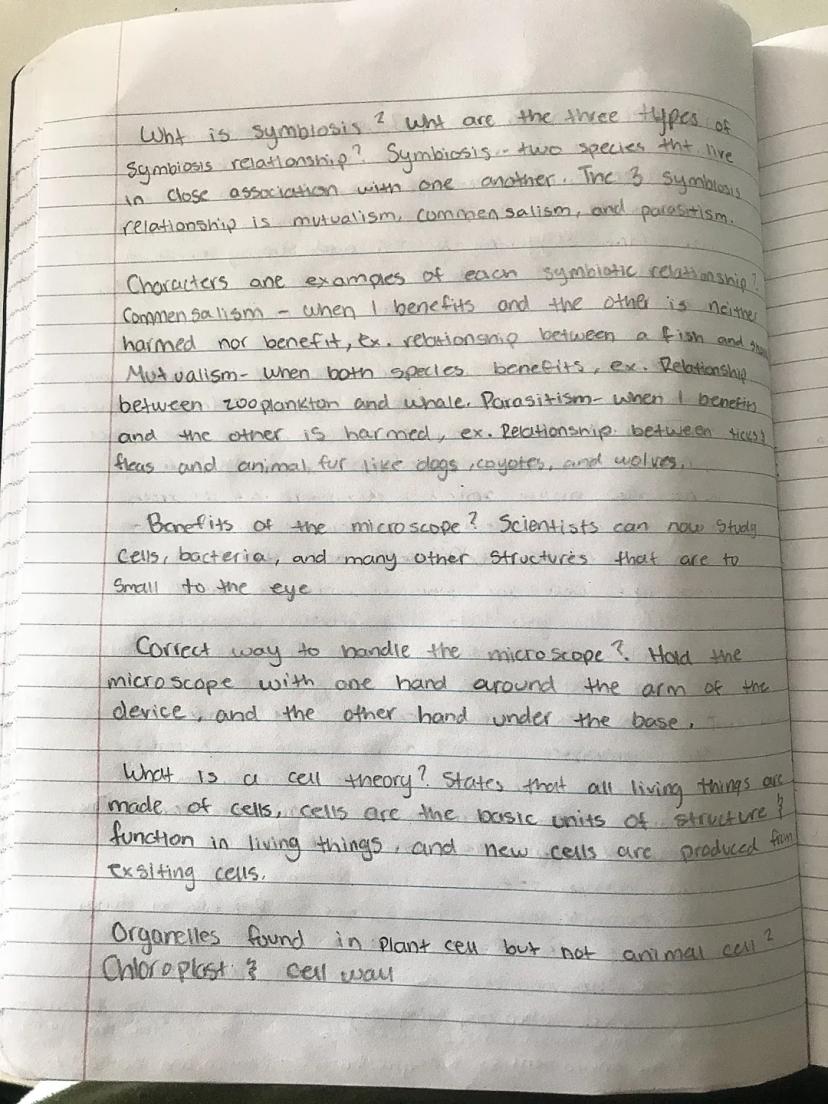 Wht is symbiosis? Wht are the three types of
symbiosis relationship? Symbiosis - two species tht live
in close association with one another. The 3 symbiosis
relationship is mutualism, commensalism, and parasitism.
Characters one examples of each symbiotic relationship?
Commensalism - when 1 benefits and the other is neither
harmed nor benefit, Ex. relationship between a fish and
Mutualism- when both species benefits, ex. Relationship
between zooplankton and whale. Parasitism- when 1 benefits
and the other is harmed, ex. Relationship between ticks &
fleas and animal fur like dogs, coyotes, and wolves.
- Benefits of the microscope? Scientists can now study
cells, bacteria, and many other structures that are to
small to the eye
Correct way to handle the microscope? Hold the
microscope with one hand around the arm of the
device, and the other hand under the base.
What is a cell theory? States that all living things are
made of cells, cells are the basic units of structure &
function in living things, and new cells are produced from
exsiting cells.
Organelles found in plant cell but not animal cell?
Chloroplast & cell wall